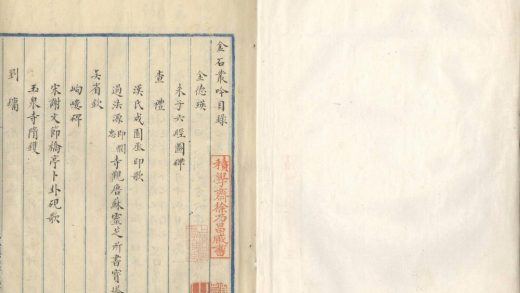 金石叢吟目錄
積學齋徐乃昌藏書
金德瑛
朱子六經圖碑
查禮
漢氏成園丞印歌
過法源寺觀唐蘇靈芝所書寶塔
即憫忠
吳省欽
岣嶁碑
宋謝文節橋亭卜卦硯歌
玉泉寺隋鑊
劉墉